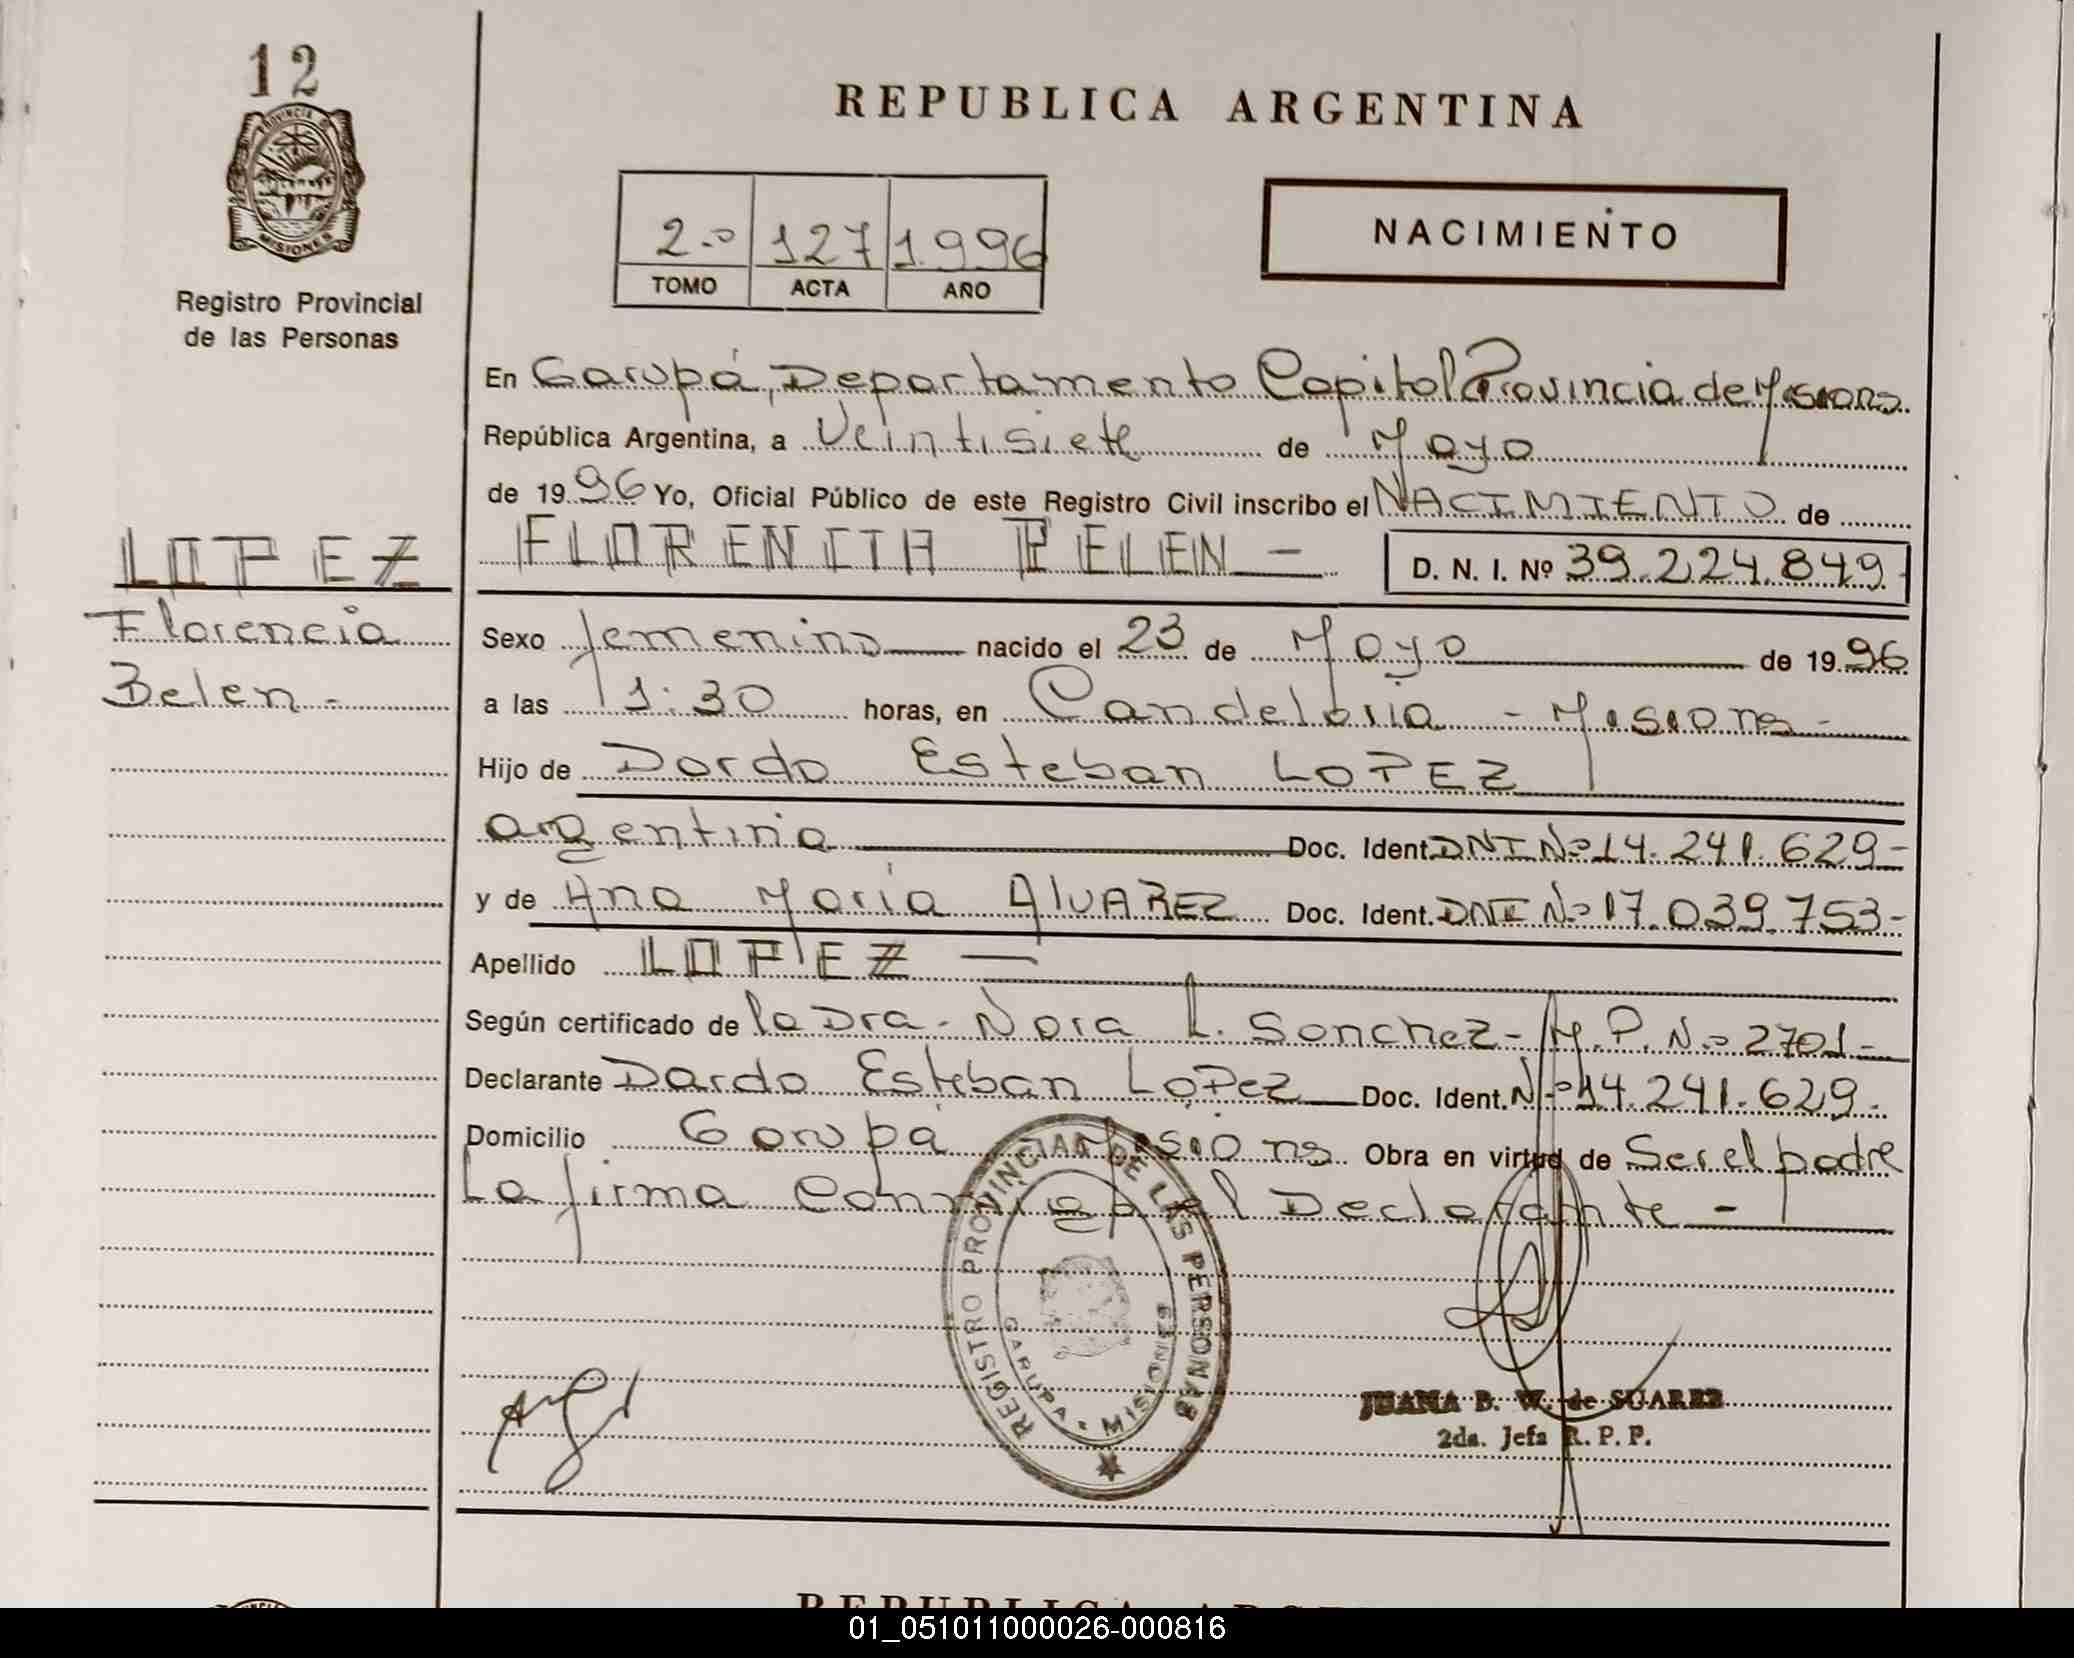 12
REPUBLICA ARGENTINA
PROVINCIA D MISIONES
NACIMIENTO
2-º 127 1.996
TOMO ACTA AÑO
Registro Provincial
de las Personas
En Garupá, Departamento Capital Provincia de Misiones
República Argentina, a Veintisiete de Mayo
de 1996 Yo, Oficial Público de este Registro Civil inscribo el NACIMIENTO de
LOPEZ
FLORENCIA BELEN - D. N. I. Nº 39.224.849
Florencia
Belen -
Sexo femenino nacido el 23 de Mayo de 1996
a las 11:30 horas, en Candelaria - Misiones -
Hijo de Dardo Esteban LOPEZ
argentina Doc. Ident. DNI Nº 14.241.629-
y de Ana María ALVAREZ Doc. Ident. DNI Nº 17.039.753-
Apellido LOPEZ -
Según certificado de la Dra. Nora L. Sanchez - M.P. Nº 2701 -
Declarante Dardo Esteban Lopez Doc. Ident. Nº 14.241.629.
Domicilio Garupá Misiones Obra en virtud de Ser el padre
La firma Conmigo el Declarante -
REGISTRO PROVINCIAL DE LAS PERSONAS
GARUPA - MISIONES
JUANA B. W. de SUAREZ
2da. Jefa R. P. P.
01_051011000026-000816